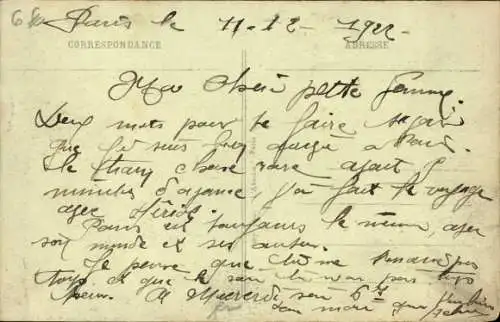 Paris le 11-12-1922-
CORRESPONDANCE ADRESSE
Ma chère petite femme.
Deux mots pour te faire savoir
que je suis bien arrivé à Paris.
le train chose rare ayant 5
minutes d'avance, j'ai fait le voyage
avec
Paris est toujours le même, avec
son monde et ses autos.
Je pense que tu ne t'ennuies pas
trop et que le
peur. A Mercredi soir 6h
ton mari que